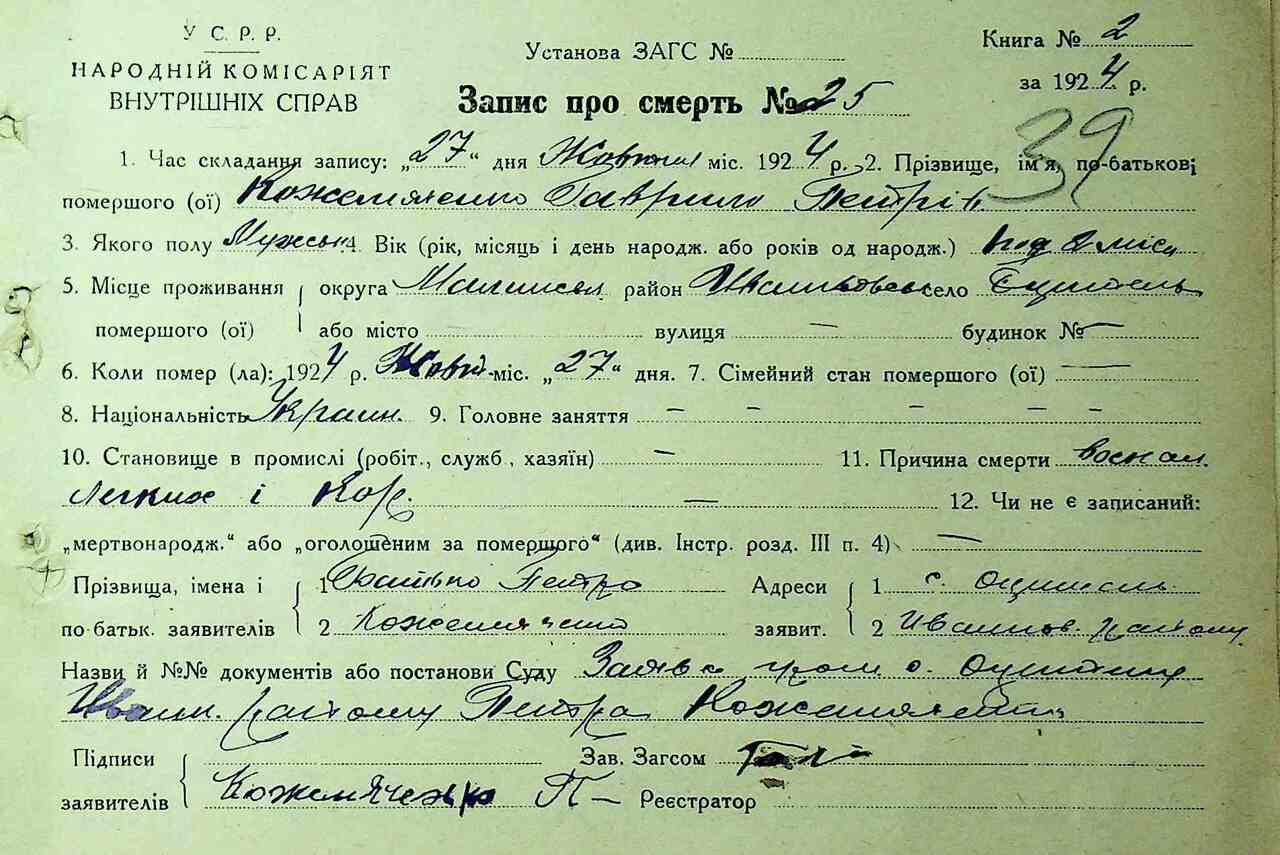 У С. Р. Р.
НАРОДНІЙ КОМІСАРІЯТ
ВНУТРІШНІХ СПРАВ
Установа ЗАГС №
Книга № 2
за 1924 р.
Запис про смерть № 25
39
1. Час складання запису: „27“ дня Жовтня міс. 1924 р. 2. Прізвище, ім'я, по-батькові
помершого (ої) Кожемяченко Гаврило Петрів
3. Якого полу Мужськ. 4. Вік (рік, місяць і день народж. або років од народж.) 2 міся
5. Місце проживання округа Малинськ район село
помершого (ої) або місто — вулиця — будинок № —
6. Коли помер (ла): 1924 р. Жовт. міс. „27“ дня. 7. Сімейний стан помершого (ої) —
8. Національність Украин. 9. Головне заняття — — — — —
10. Становище в промислі (робіт., служб., хазяїн) — 11. Причина смерти воспал.
Легких і Кор. — 12. Чи не є записаний:
„мертвонародж.“ або „оголошеним за помершого“ (див. Інстр. розд. III п. 4) —
Прізвища, імена і 1 Батько Петро Адреси 1 с. Оцитель
по-батьк. заявителів 2 Кожемяченко заявит. 2 Иванков. району
Назви й №№ документів або постанови Суду Заява гром с.
Иванк. району Петра Кожемяченка
Підписи Зав. Загсом
заявителів Кожемяченко П — Реєстратор